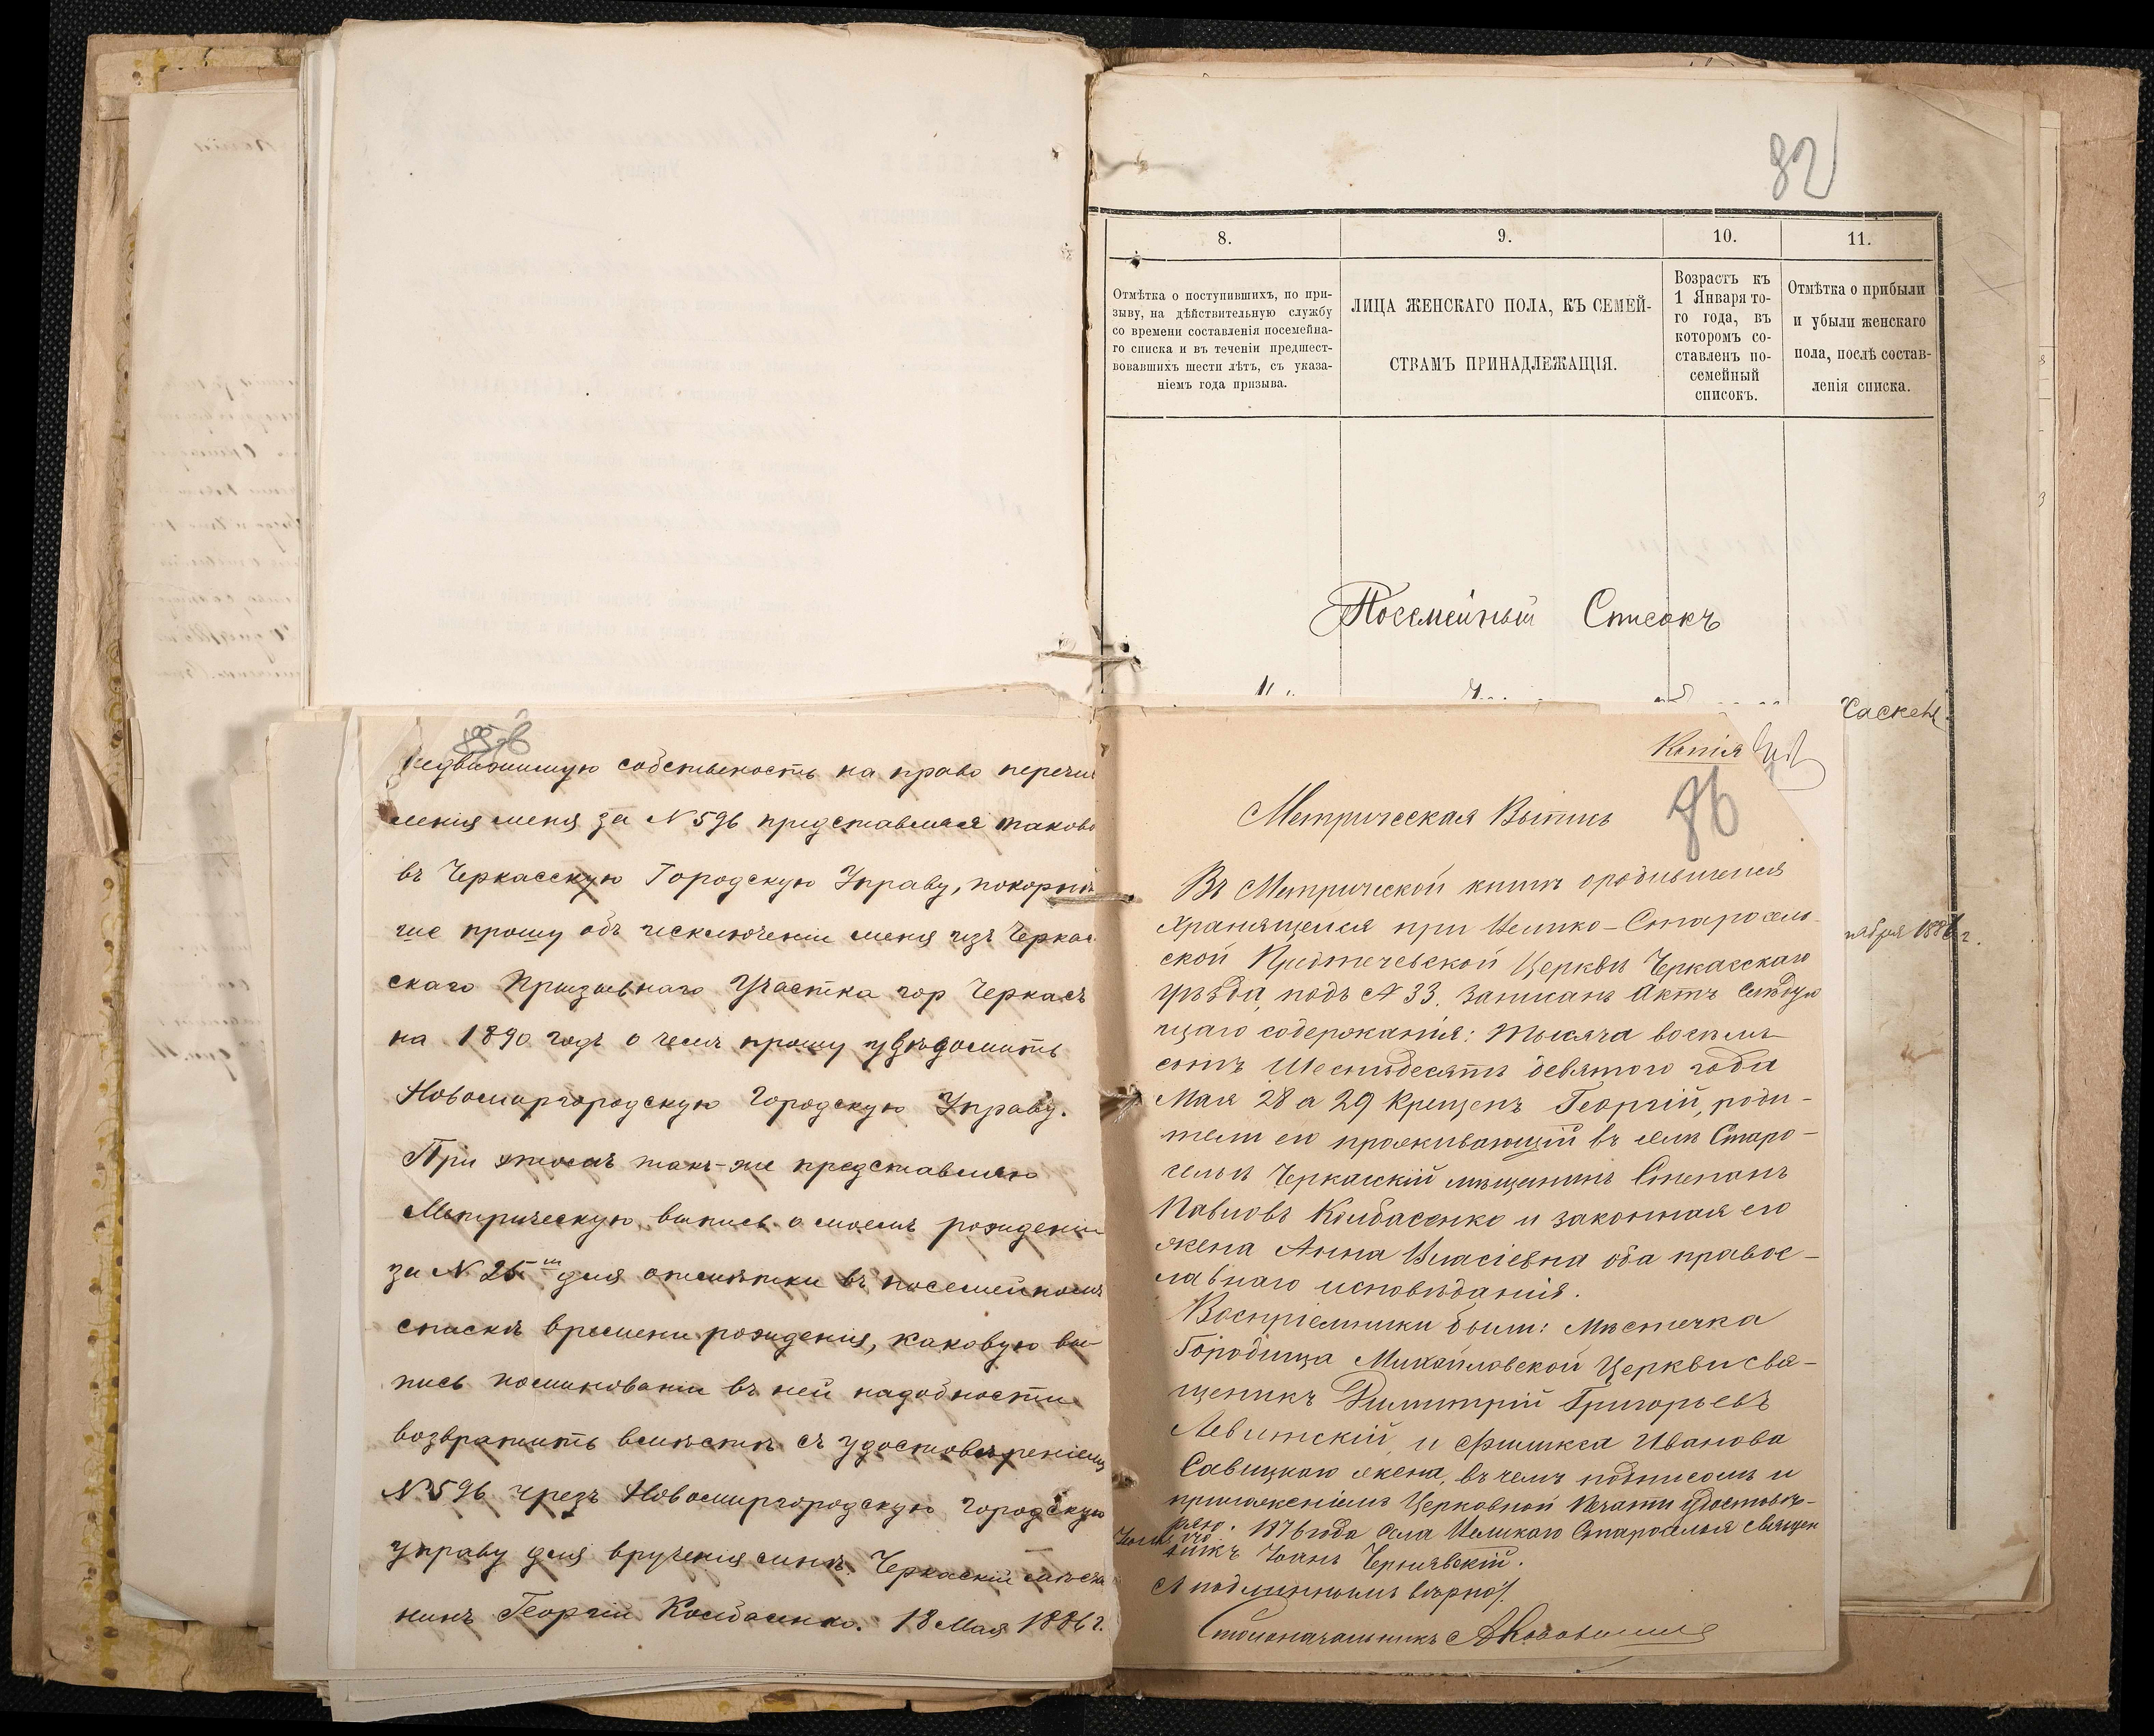 82
8.
9.
10.
11.
Отмѣтка о поступившихъ, по при-
зыву, на дѣйствительную службу
со времени составленія посемейна-
го списка и въ теченіи предшест-
вовавшихъ шести лѣтъ, съ указа-
ніемъ года призыва.
ЛИЦА ЖЕНСКАГО ПОЛА, КЪ СЕМЕЙ-
СТВАМЪ ПРИНАДЛЕЖАЩІЯ.
Возрастъ къ
1 Января то-
го года, въ
которомъ со-
ставленъ по-
семейный
списокъ.
Отмѣтка о прибыли
и убыли женскаго
пола, послѣ состав-
ленія списка.
Посемейный Списокъ
недвижимую собственость на право перечи
сленія меня за N 596 представляя таково
въ Черкасскую Городскую Управу, покорнѣ
ше прошу объ исключеніи меня изъ Черкас
скаго Призывнаго Участка гор Черкасъ
на 1890 годъ о чемъ прошу увѣдомить
Новомиргородскую Городскую Управу.
При этомъ такъ-же представляю
Метрическую выпись о моемъ рожденіи
за N 25 для отмѣтки въ посемейномъ
спискѣ времени рожденія, каковую вы
пись поминованіи въ ней надобности
возвратить вмѣстѣ съ удостовѣреніемъ
N 596 чрезъ Новомиргородскую городскую
управу для врученія мнѣ. Черкаскій мѣща
нинъ Георгій Колбасенко. 18 Мая 1886 г.
Копія
86
Метрическая Выпись
Въ Метрической книгѣ о родившихся
хранящейся при Велико-Старосель-
ской Предтечевской Церкви Черкасскаго
уѣзда, подъ N 33. записанъ Актъ слѣдую
щаго содержанія: тысяча восемь-
сотъ Шестьдесятъ девятого года
Мая 28 а 29 Крещенъ Георгій, роди-
тели его проживающій въ селѣ Старо-
сельи Черкасскій мѣщанинъ Степанъ
Павловъ Колбасенко и законная его
жена Анна Власіевна оба правос-
лавнаго исповѣданія.
Воспріемники были: Мѣстечка
Городища Михайловской Церкви свя-
щеникъ Димитрій Григорьевъ
Левитскій, и Феликса Иванова
Савицкаго жена, въ чемъ подписомъ и
приложеніемъ Церковной Печати удостовѣ-
ряю. 1876 года Села Великаго Староселья священ
никъ Іоанъ Чернявскій.
Съ подлиннымъ вѣрно
Столоначальникъ